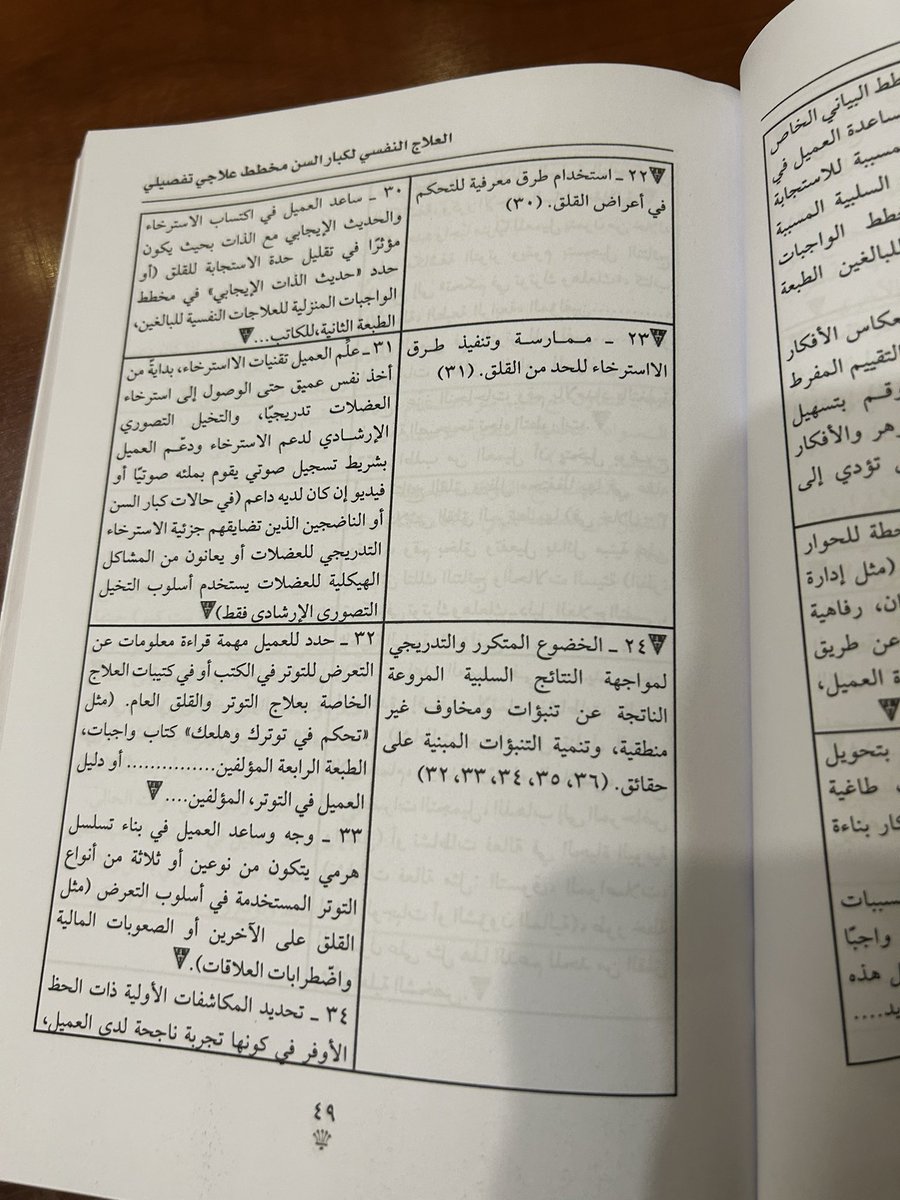 العلاج النفسي لكبار السن مخطط علاجي تفصيلي
٢٢ ـ استخدام طرق معرفية للتحكم
في أعراض القلق. (٣٠)
٣٠ ـ ساعد العميل في اكتساب الاسترخاء
والحديث الإيجابي مع الذات بحيث يكون
مؤثرًا في تقليل حدة الاستجابة للقلق (أو
حدد «حديث الذات الإيجابي» في مخطط
الواجبات المنزلية للعلاجات النفسية للبالغين،
الطبعة الثانية،للكاتب...
٢٣ ـ مـمـارسـة وتنفيذ طـرق
الااسترخاء للحد من القلق. (٣١)
٣١ ـ علِّم العميل تقنيات الااسترخاء، بدايةً من
أخذ نفس عميق حتى الوصول إلى استرخاء
العضلات تدريجيًا، والتخيل التصوري
الإرشـادي لدعم الاسترخاء ودعّـم العميل
بشريط تسجيل صوتي يقوم بملئه صوتيًا أو
فيديو إن كان لديه داعم (في حالات كبار السن
أو الناضجين الذين تضايقهم جزئية الاسترخاء
التدريجي للعضلات أو يعانون من المشاكل
الهيكلية للعضلات يستخدم أسلوب التخيل
التصوري الإرشادي فقط)
٢٤ ـ الخضوع المتكرر والتدريجي
لمواجهة النتائج السلبية المروعة
الناتجة عن تنبؤات ومخاوف غير
منطقية، وتنمية التنبؤات المبنية على
حقائق. (٣٦، ٣٥، ٣٤، ٣٣، ٣٢)
٣٢ ـ حدد للعميل مهمة قراءة معلومات عن
التعرض للتوتر في الكتب أو في كتيبات العلاج
الخاصة بعلاج التوتر والقلق العام. (مثل
«تحكم في توترك وهلعك» كتاب واجبات،
الطبعة الرابعة المؤلفين............... أو دليل
العميل في التوتر، المؤلفين....
٣٣ ـ وجه وساعد العميل في بناء تسلسل
هرمي يتكون من نوعين أو ثلاثة من أنواع
التوتر المستخدمة في أسلوب التعرض (مثل
القلق على الآخرين أو الصعوبات المالية
واضطرابات العلاقات).
٣٤ ـ تحديد المكاشفات الأولية ذات الحظ
الأوفر في كونها تجربة ناجحة لدى العميل،
٤٩
طط البياني الخاص
ساعدة العميل في
مسببة للاستجابة
السلبية المسببة
خطط الواجبات
للبالغين الطبعة
عكاس الأفكار
التقييم المفرط
وقـم بتسهيل
هر والأفكار
تؤدي إلى
حطة للحوار
(مثل إدارة
ان، رفاهية
عن طريق
ة العميل،
بتحويل
طاغية
كار بناءة
سببات
واجبًا
ل هذه
يد....